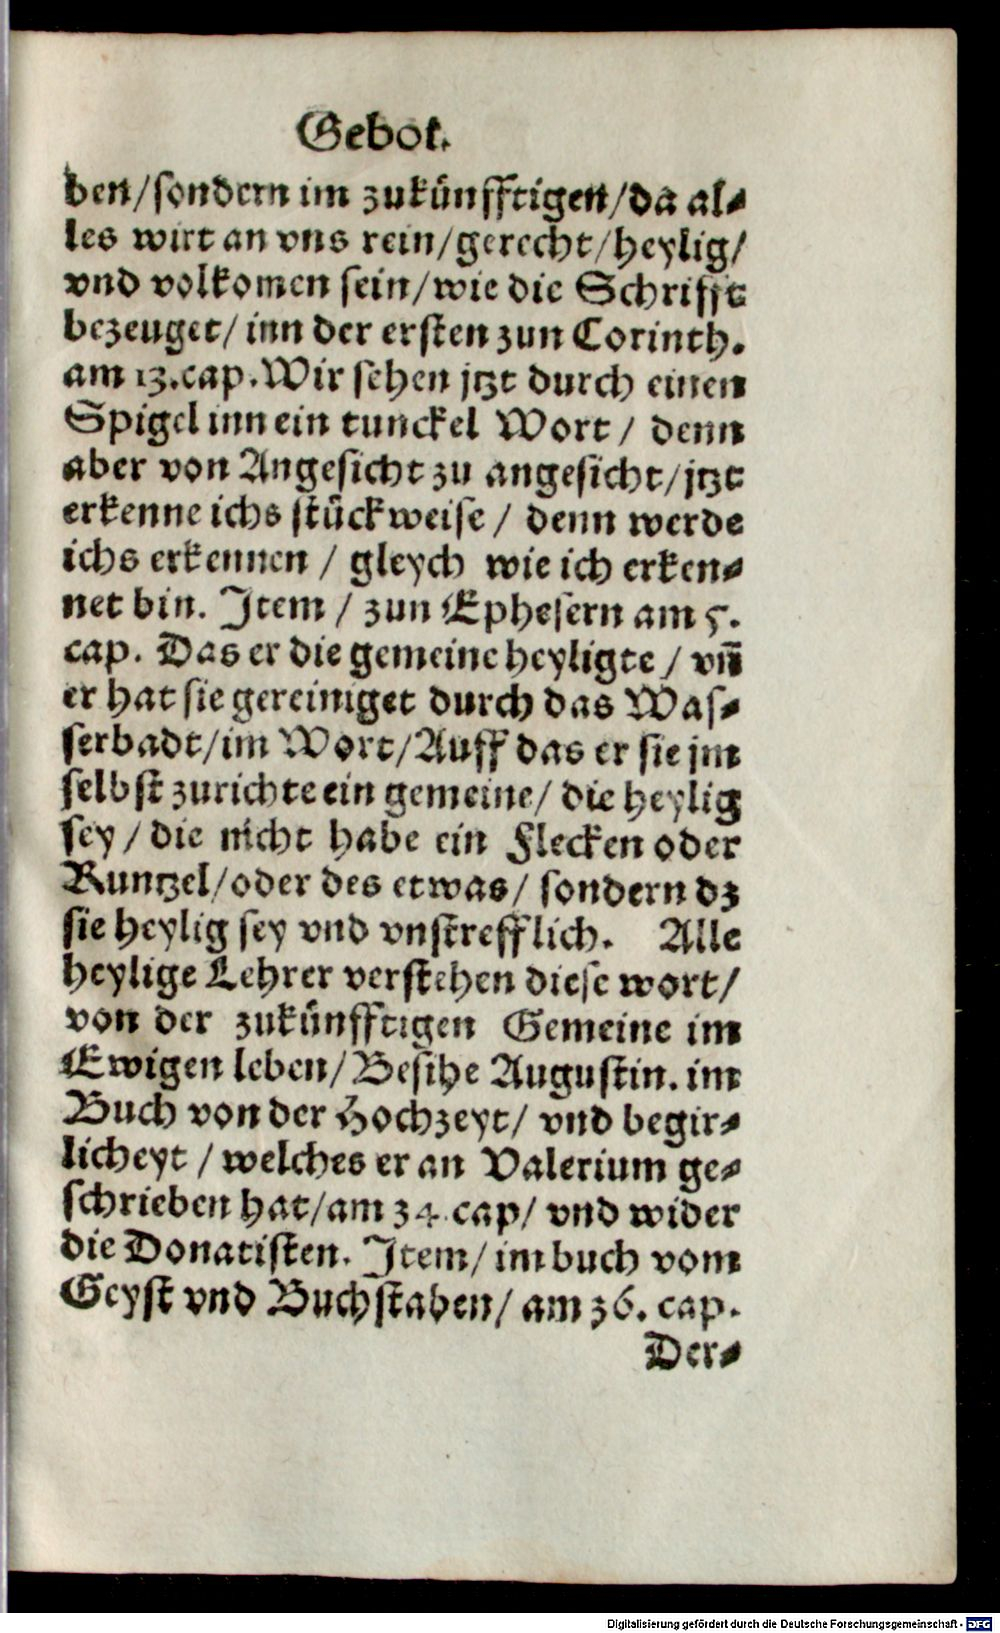 Gebot.
ben/sondern im zukünfftigen/da al⸗
les wirt an vns rein/gerecht/heylig/
vnd volkomen sein/wie die Schrifft
bezeuget/ inn der ersten zun Corinth.
am 13.cap.Wir sehen jtzt durch einen
Spigel inn ein tunckel Wort / denn
aber von Angesicht zu angesicht/jtzt
erkenne ichs stückweise / denn werde
ichs erkennen / gleych wie ich erken⸗
net bin. Item / zun Ephesern am 5.
cap. Das er die gemeine heyligte / vñ
er hat sie gereiniget durch das Was⸗
serbadt/im Wort/Auff das er sie jm
selbst zurichte ein gemeine/ die heylig
sey / die nicht habe ein Flecken oder
Runtzel/oder des etwas/ sondern dz
sie heylig sey vnd vnstrefflich. Alle
heylige Lehrer verstehen diese wort/
von der zukünfftigen Gemeine im
Ewigen leben/ Besihe Augustin. im
Buch von der Hochzeyt/ vnd begir⸗
licheyt / welches er an Valerium ge⸗
schrieben hat/am 34.cap/ vnd wider
die Donatisten. Item/ im buch vom
Geyst vnd Buchstaben/ am 36. cap.
Der⸗
Digitalisierung gefördert durch die Deutsche Forschungsgemeinschaft - DFG